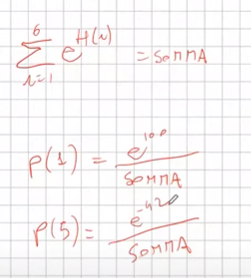 6
∑ e^H(i) = SOMMA
i=1
p(1) = e^100 / SOMMA
p(5) = e^-42 / SOMMA